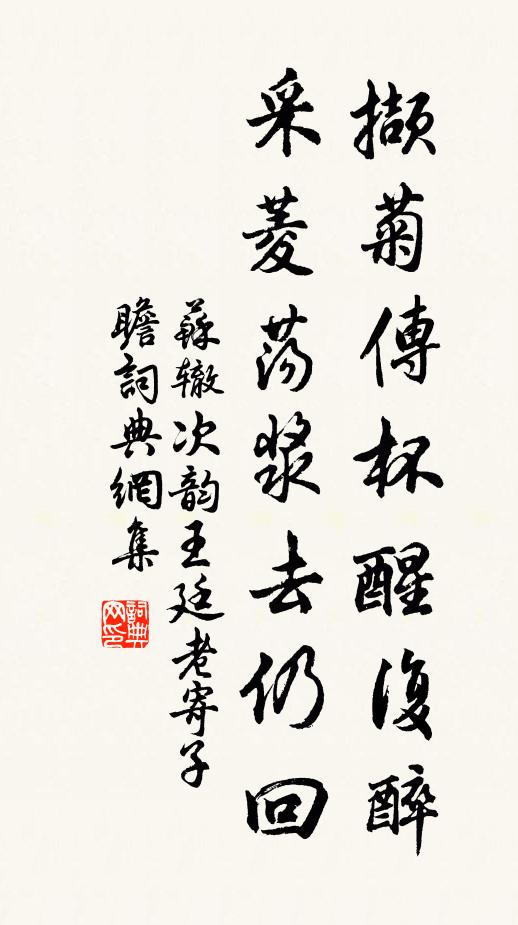 擷菊傳杯醒復醉
采菱蕩漿去仍回
蘇辙次韵王廷老寄子
瞻詞典網集
詞典网印